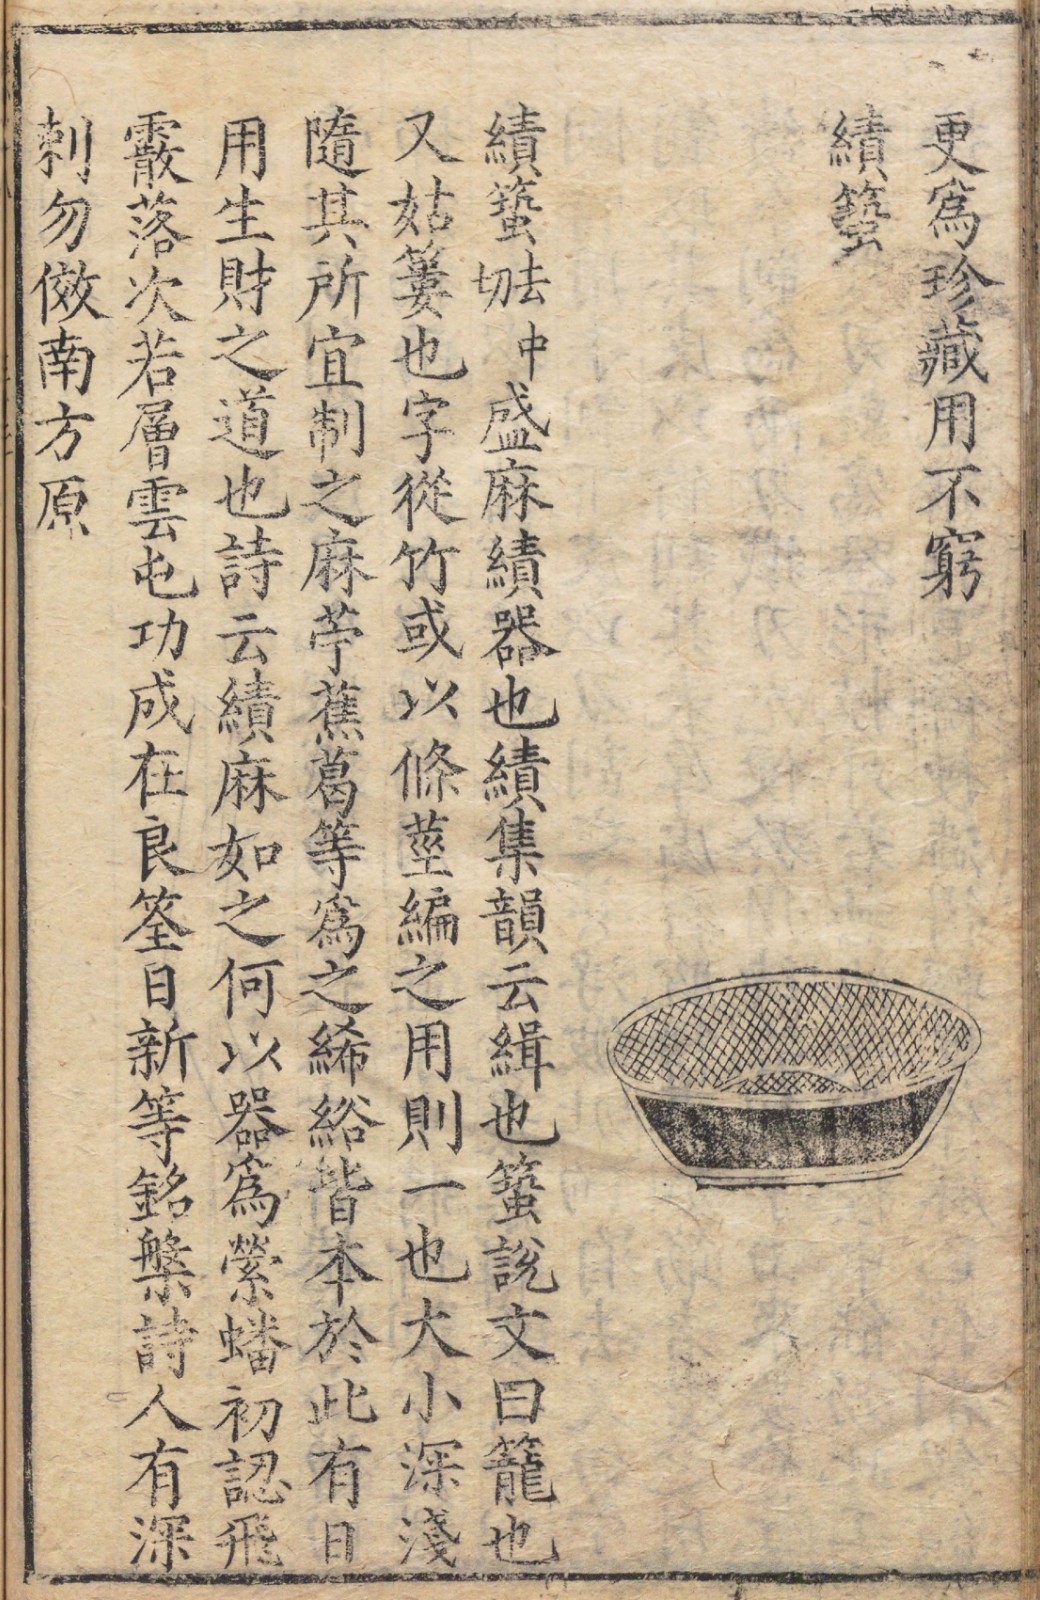 更爲珍藏用不窮
績䈅
績䈅去中切盛麻績器也績集韻云緝也䈅說文曰籠也
又姑簍也字從竹或以條莖編之用則一也大小深淺
隨其所宜制之麻苧蕉葛等爲之絺綌皆本於此有日
用生財之道也詩云績麻如之何以器爲縈蟠初認飛
霰落次若層雲屯功成在良筌日新等銘槃詩人有深
刺勿倣南方原